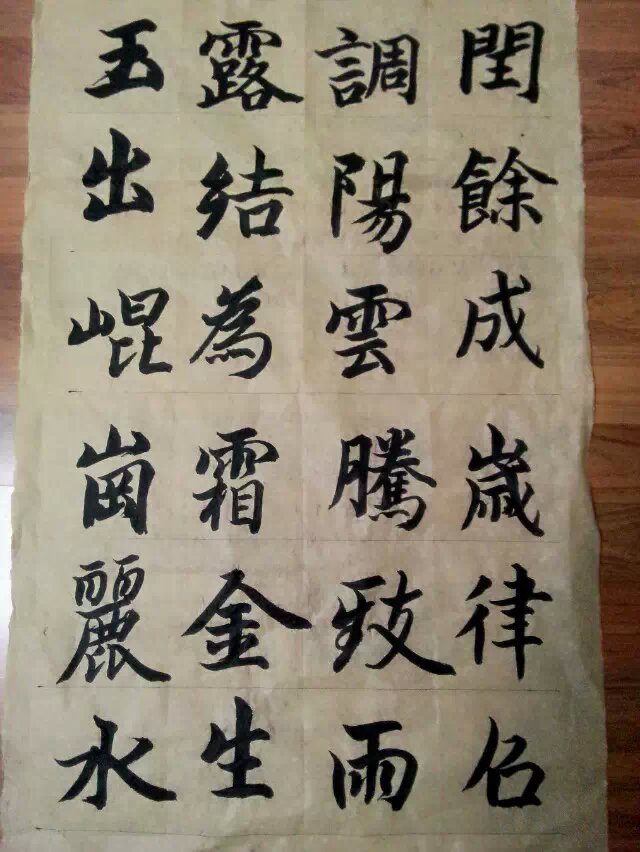 閏餘成歲律召
調陽雲騰致雨
露結為霜金生
玉出崐崗麗水